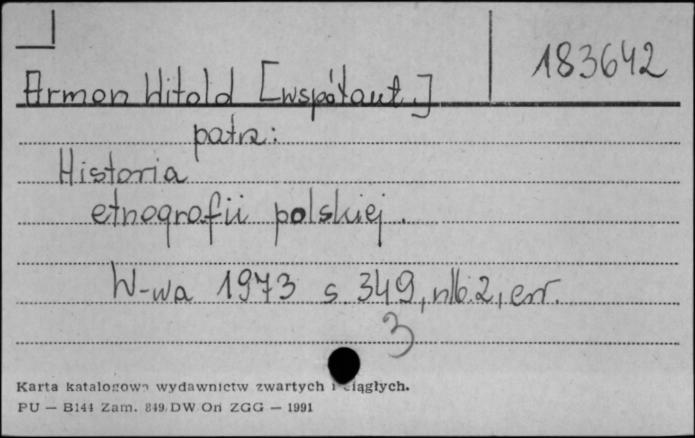 183642
Armon Witold [współaut.]
patrz:
Historia
etnografii polskiej.
W-wa 1973 s. 349, nlb. 2, err.
3
Karta katalogowa wydawnictw zwartych i ciągłych.
PU — B144 Zam. 849/DW Ori ZGG — 1991